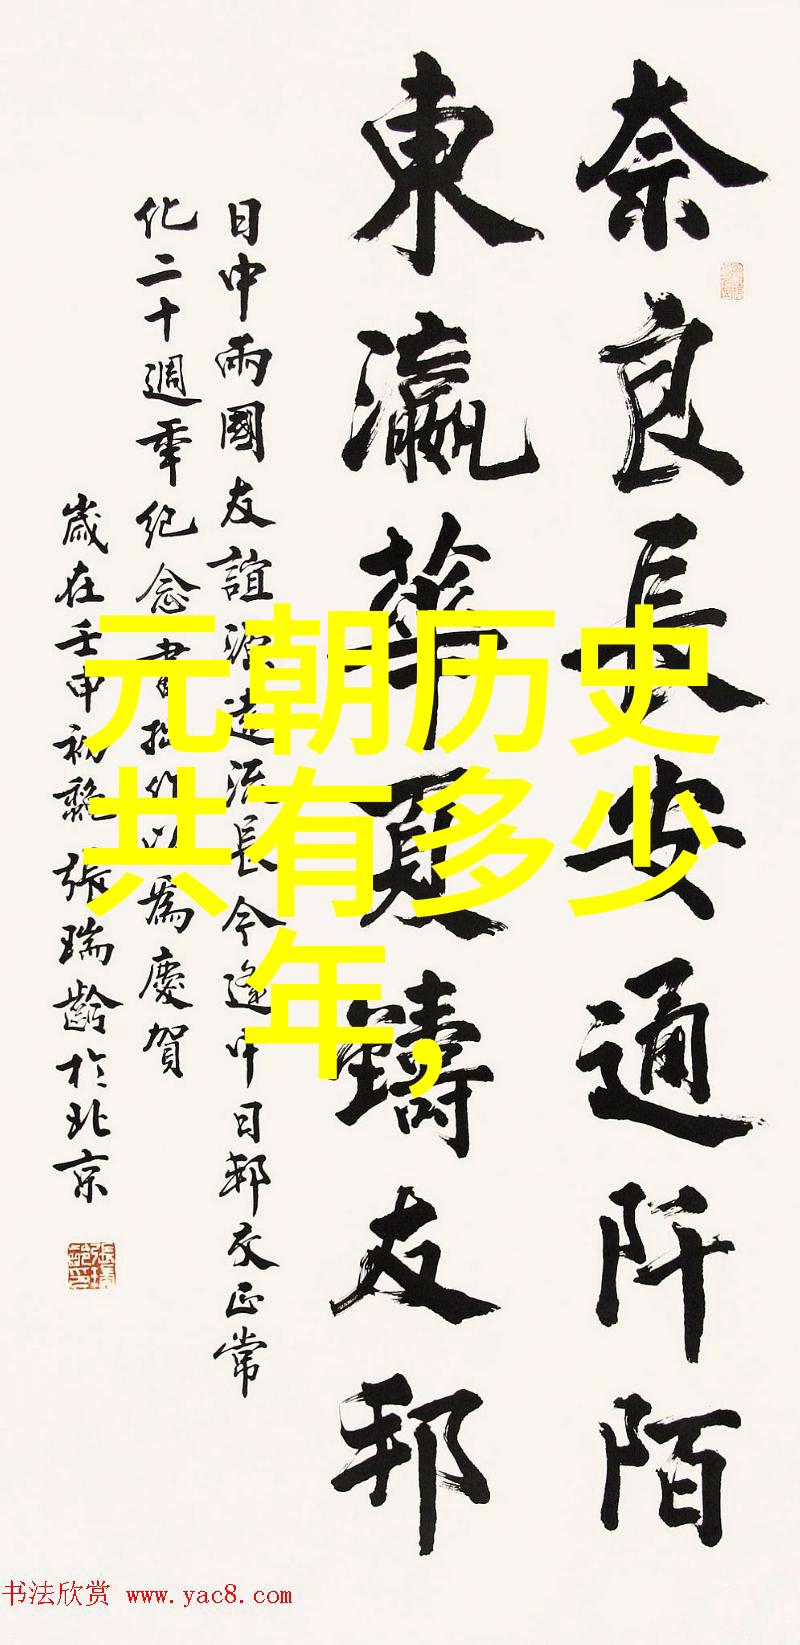 奈良長安通阡陌
東瀛華夏鑄友邦
日中兩國友誼源遠流長今逢中日邦交正常
化二十週年紀念書拙作以為慶賀
歲在壬申初秋張瑞齡於北京
元朝历史
共有多少
年,
张瑞龄印
书法欣赏 www.yac8.com